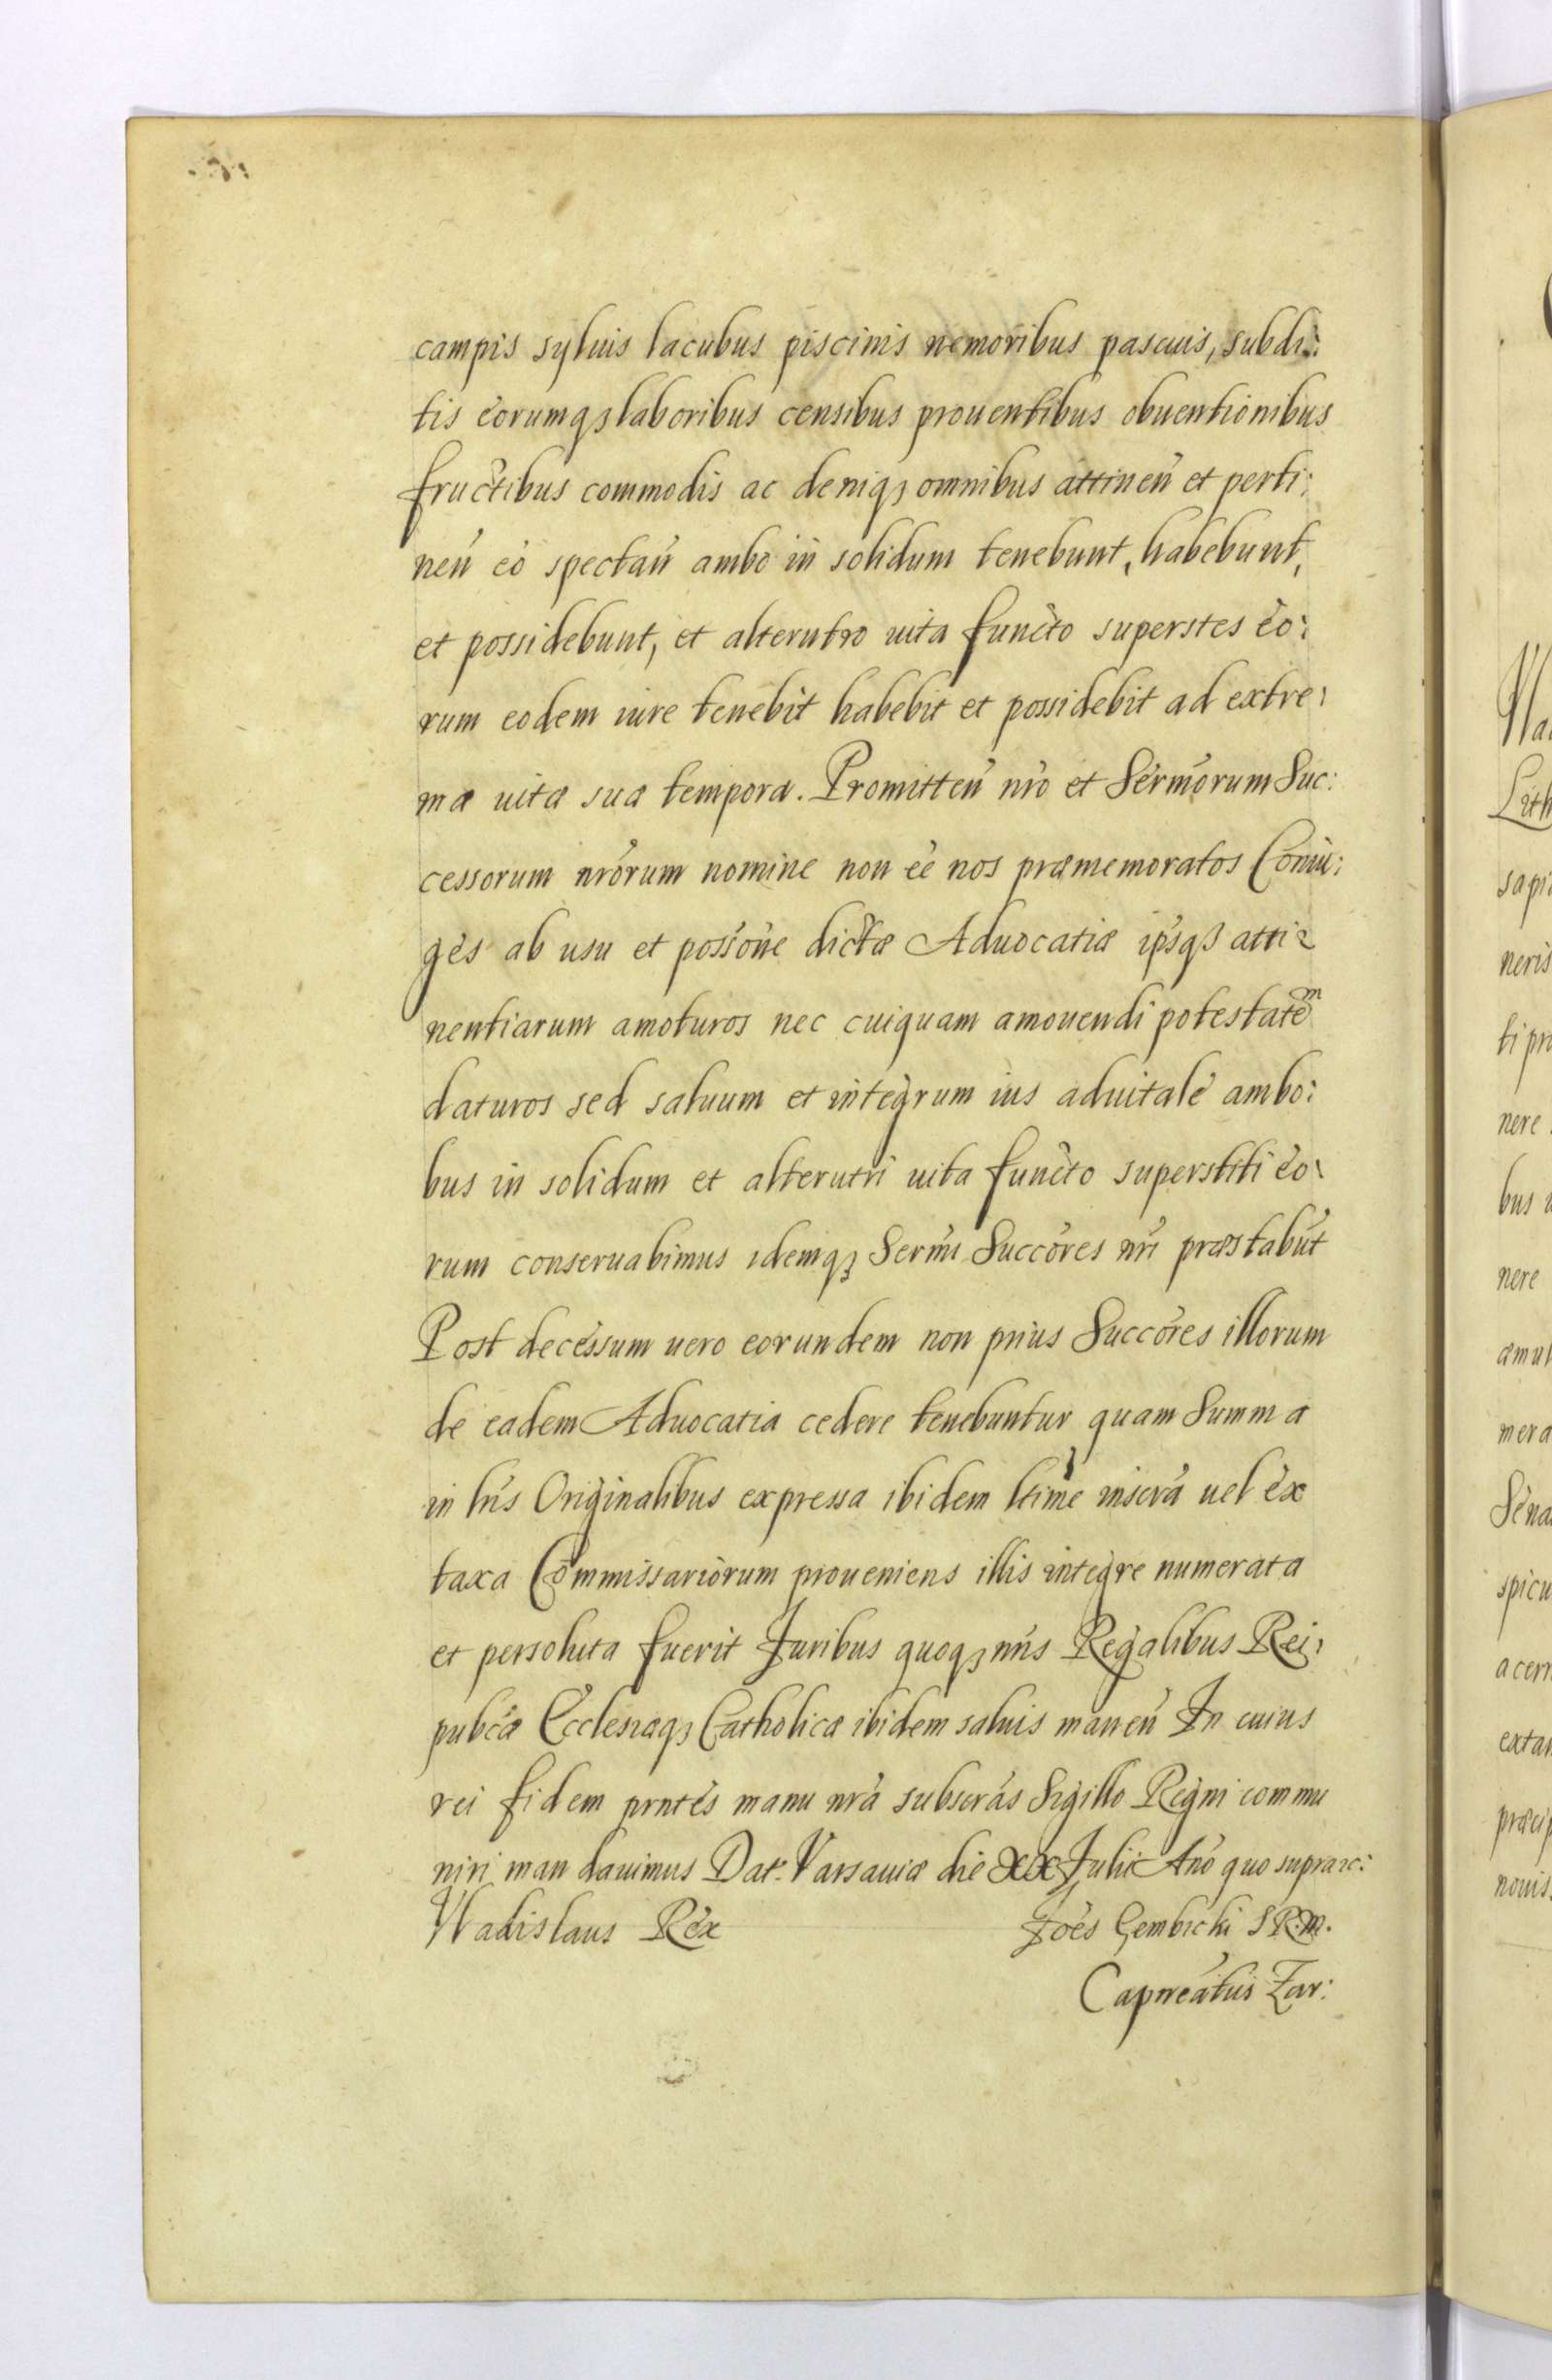 campis syluis lacubus piscinis nemoribus pascuis, subdi:
tis eorumq₃ laboribus censibus prouentibus obuentionibus
fructibus commodis ac deniq₃ omnibus attineñ et perti:
neñ eò spectañ ambo in solidum tenebunt, habebunt,
et possidebunt, et alterutro uita functo superstes eo:
rum eodem iure tenebit habebit et possidebit ad extre:
ma uitæ suæ tempora. Promitteñ nro et Sermorum Suc:
cessorum nrorum nomine non eè nos præmemoratos Coniu:
ges ab usu et possone dictæ Aduocatiæ ipsq₃ atti:
nentiarum amoturos nec cuiquam amouendi potestatem
daturos sed saluum et integrum ius aduitale ambo:
bus in solidum et alterutri uita functo superstiti eo:
rum conseruabimus idemq₃ Sermi Succores nri præstabut
Post decessum uero eorundem non prius Succores illorum
de eadem Aduocatia cedere tenebuntur quam Summa
in lris Originalibus expressa ibidem ltime inscra uel ex
taxa Commissariorum proueniens illis integre numerata
et persoluta fuerit Juribus quoq₃ nris Regalibus Rei:
pubcæ Ecclesiæq₃ Catholicæ ibidem saluis maneñ In cuius
rei fidem prntes manu nra subscras Sigillo Regni commu
niri mandauimus Dat. Varsauiæ die XX Julii Ano quo supra ec:
Wladislaus Rex
Joes Gembicki S R. M.
Capneatus Zar:
Wla
Lith
sapi
neris
ti pr
nere
bus
nere
æmul
mera
Sena
spicu
acerr
extan
præcip
nouis